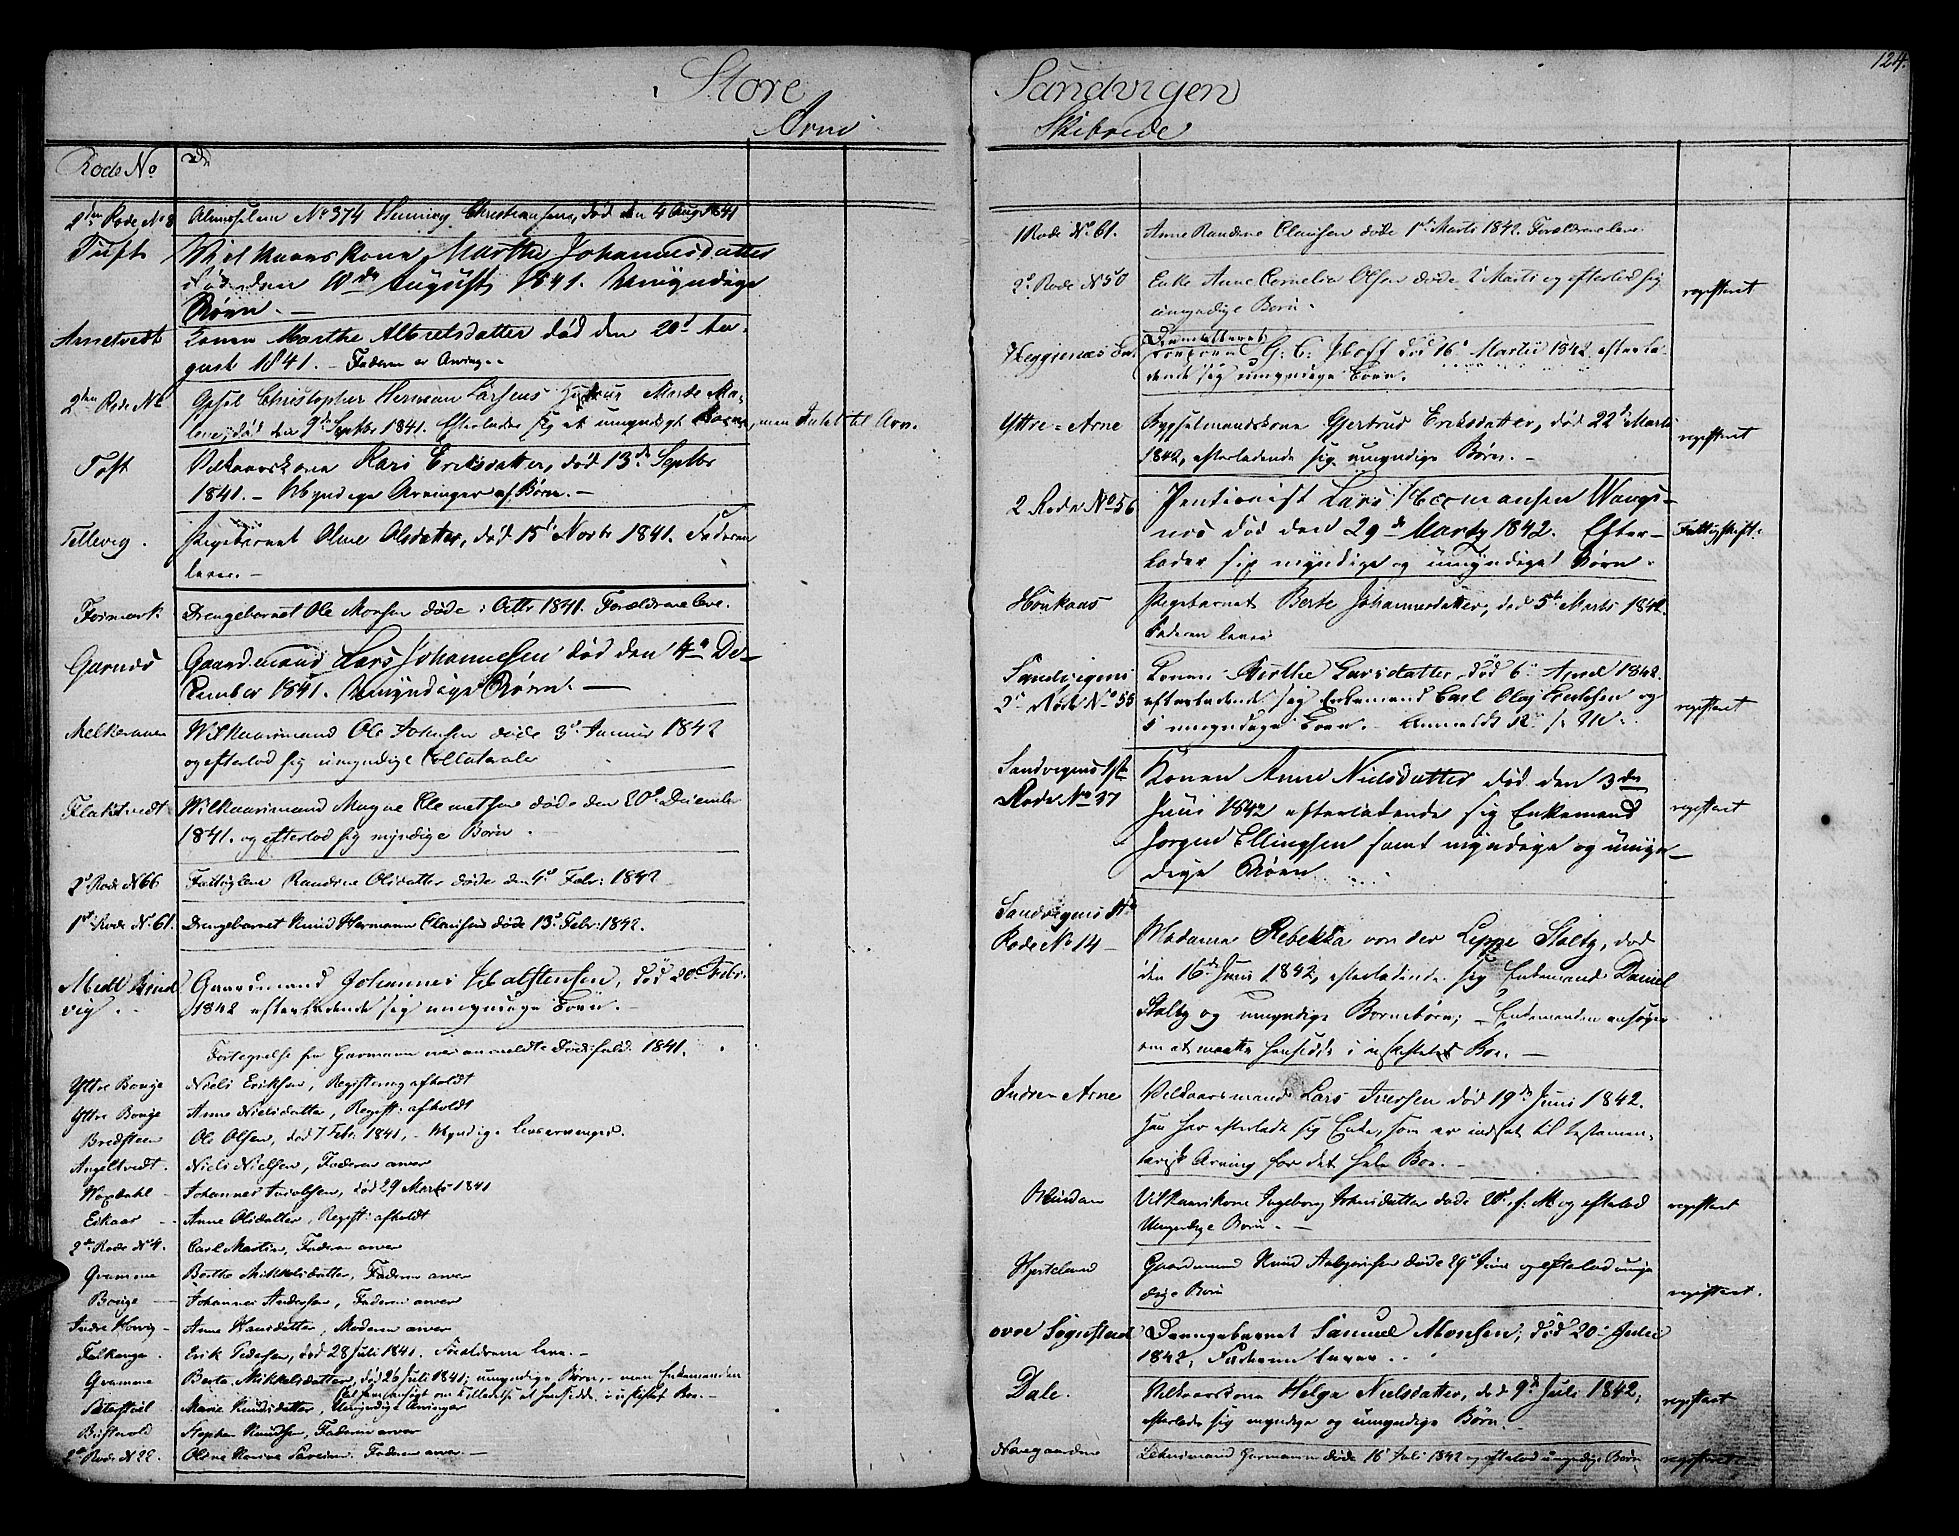 Store
Arne
Rode No
2den Rode No 8 Almisselem No 374 Henning Christiansen, død den 4 Aug 1841
Tuft Vilkaarskone Marthe Johannesdatter
død den 10de August 1841. Umyndige
Børn. —
Arnetvedt Konen Marthe Albretsdatter død den 20d Au-
gust 1841. — Faderen er Arving. -
2den Rode No Christopher Herman Larsens Hustrue Marte Ma-
lene, død den 9de Septbr 1841. Efterlader sig et umyndigt Barn, men Intet til Arv.
Toft Vilkaarskone Kari Eriksdatter, død 13de Septbr
1841. — Myndige Arvinger af Børn. —
Tellevig. Pigebarnet Oline Olsdatter, død 15de Novbr 1841. Faderen
lever. —
Formerk: Drengebarnet Ole Monsen døde i Octbr 1841. Forældrene leve.
Garnæs Gaardmand Lars Johannessen død den 4de De-
cember 1841. Umyndige Børn. —
Melkeraaen Wilkaarsmand Ole døde 3d Januar 1842
og efterlod sig umyndige Collaterale
Flaktvedt Wilkaarsmand Magne Clemetsen døde den 20d December
1841. og efterlod sig myndige Børn.
2d Rode No 66 Fattiglem Randine Olsdatter døde den 4d Febr: 1842
1st Rode No 61. Drengebarnet Knud Herman Clausen døde 13d Febr: 1842.
Midt
vig. Gaardmand Johannes død 20 Febr.
1842 efterladende sig umyndige Børn. —
Fortegnelse fra Garmann over anmeldte Dødsfald 1841.
Yttre Bouge Niels Eriksen, Registering afholdt
Yttre Bouge Anne Nielsdatter, Regist: afholdt
Bredsteen Ole Olsen, død 7 Febr. 1841, — Myndige Livsarvinger.
Angeltvedt. Niels Nielsen, Faderen arver
Waxdahl - Johannes død 29 Marts 1841
Eikaas - Anne Olsdatter, Regist: afholdt
2de Rode No 4. Carl Martin, Faderen arver
Gramme Berthe Mikkelsdatter, Faderen arver
Bouge - Johannes Andersen, Faderen arver
Indre Anne Hansdatter, Moderen arver
Falkanger. Erik Pedersen, død 28 Juli 1841. Forældrene leve. —
Gramme Berta Mikkelsdatter, død 26 Juli 1841; umyndige Børn, — men Enkemanden
har ansøgt om Tilladelse at hensidde i uskiftet Bo. —
Marie Knudsdatter, Umyndige Arvinger
Stephen Knudsen, Faderen arver
2de Rode No 22. Oline Faderen arver —
124.
Sandvigen
Skibrede
1 Rode No 61. Anne Randine Clausen døde 1st Marts 1842. Forældrene leve.
2d Rode No 50 Enke Anne Cornelia Olsen døde 2d Marts og efterlod sig
umyndige Børn. registeret
død 16d Martii 1842. efterla-
dende sig umyndige Børn.
Yttre-Arne Bygselmandskone Gjertrud Eriksdatter, død 22d Marts
1842, efterladende sig umyndige Børn. — registeret
2 Rode No 56 Pentionist Lars Hermansen Wangs-
næs død den 29de Marty 1842. Efter-
lader sig myndige og umyndige Børn. Fattigskift:
Haukaas Pigebarnet Berte Johannesdatter, død 5te Marts 1842.
Faderen lever
Sandvigens
2d Rode No 55 Konen Birthe Larsdatter, død 6 April 1842.
efterladende sig Enkemand Carl Olaj og
5 umyndige Børn. registeret
Sandvigens 1ste
Rode No 37 Konen Anne Nielsdatter død den 3de
Juni 1842 efterladende sig Enkemand
Jørgen Ellingsen samt myndige og umyn-
dige Børn registeret
Sandvigens 1ste
Rode No 14 — Madame Rebekka von der Lippe Stalby, død
den 16de Juni 1842, efterladende sig Enkemand Daniel
Stalby og umyndige Børnebørn; — Enkemanden ansøger
om at maatte hensidde i uskiftet Bo. —
Indre-Arne Vilkaarsmand Lars Iversen død 19de Juni 1842.
han har efterladt sig Enke, som er indsat til testamen-
tarisk Arving for det hele Bo. —
Vilkaarskone Ingeborg døde 20d f: M og efterlod
Umyndige Børn. — registeret
Hjortland Gaardmand Knud døde 29d Juni og efterlod umyn-
dige Børn registeret.
øvre Drengebarnet Samuel Monsen, død 20 Juli
1842, Faderen lever.
Dale. Vilkaarskone Helga Nielsdatter, død 9de Juli 1842;
efterlader sig myndige og umyndige Børn registeret
døde 16 Juli 1842 og efterlod umyndige Børn registeret